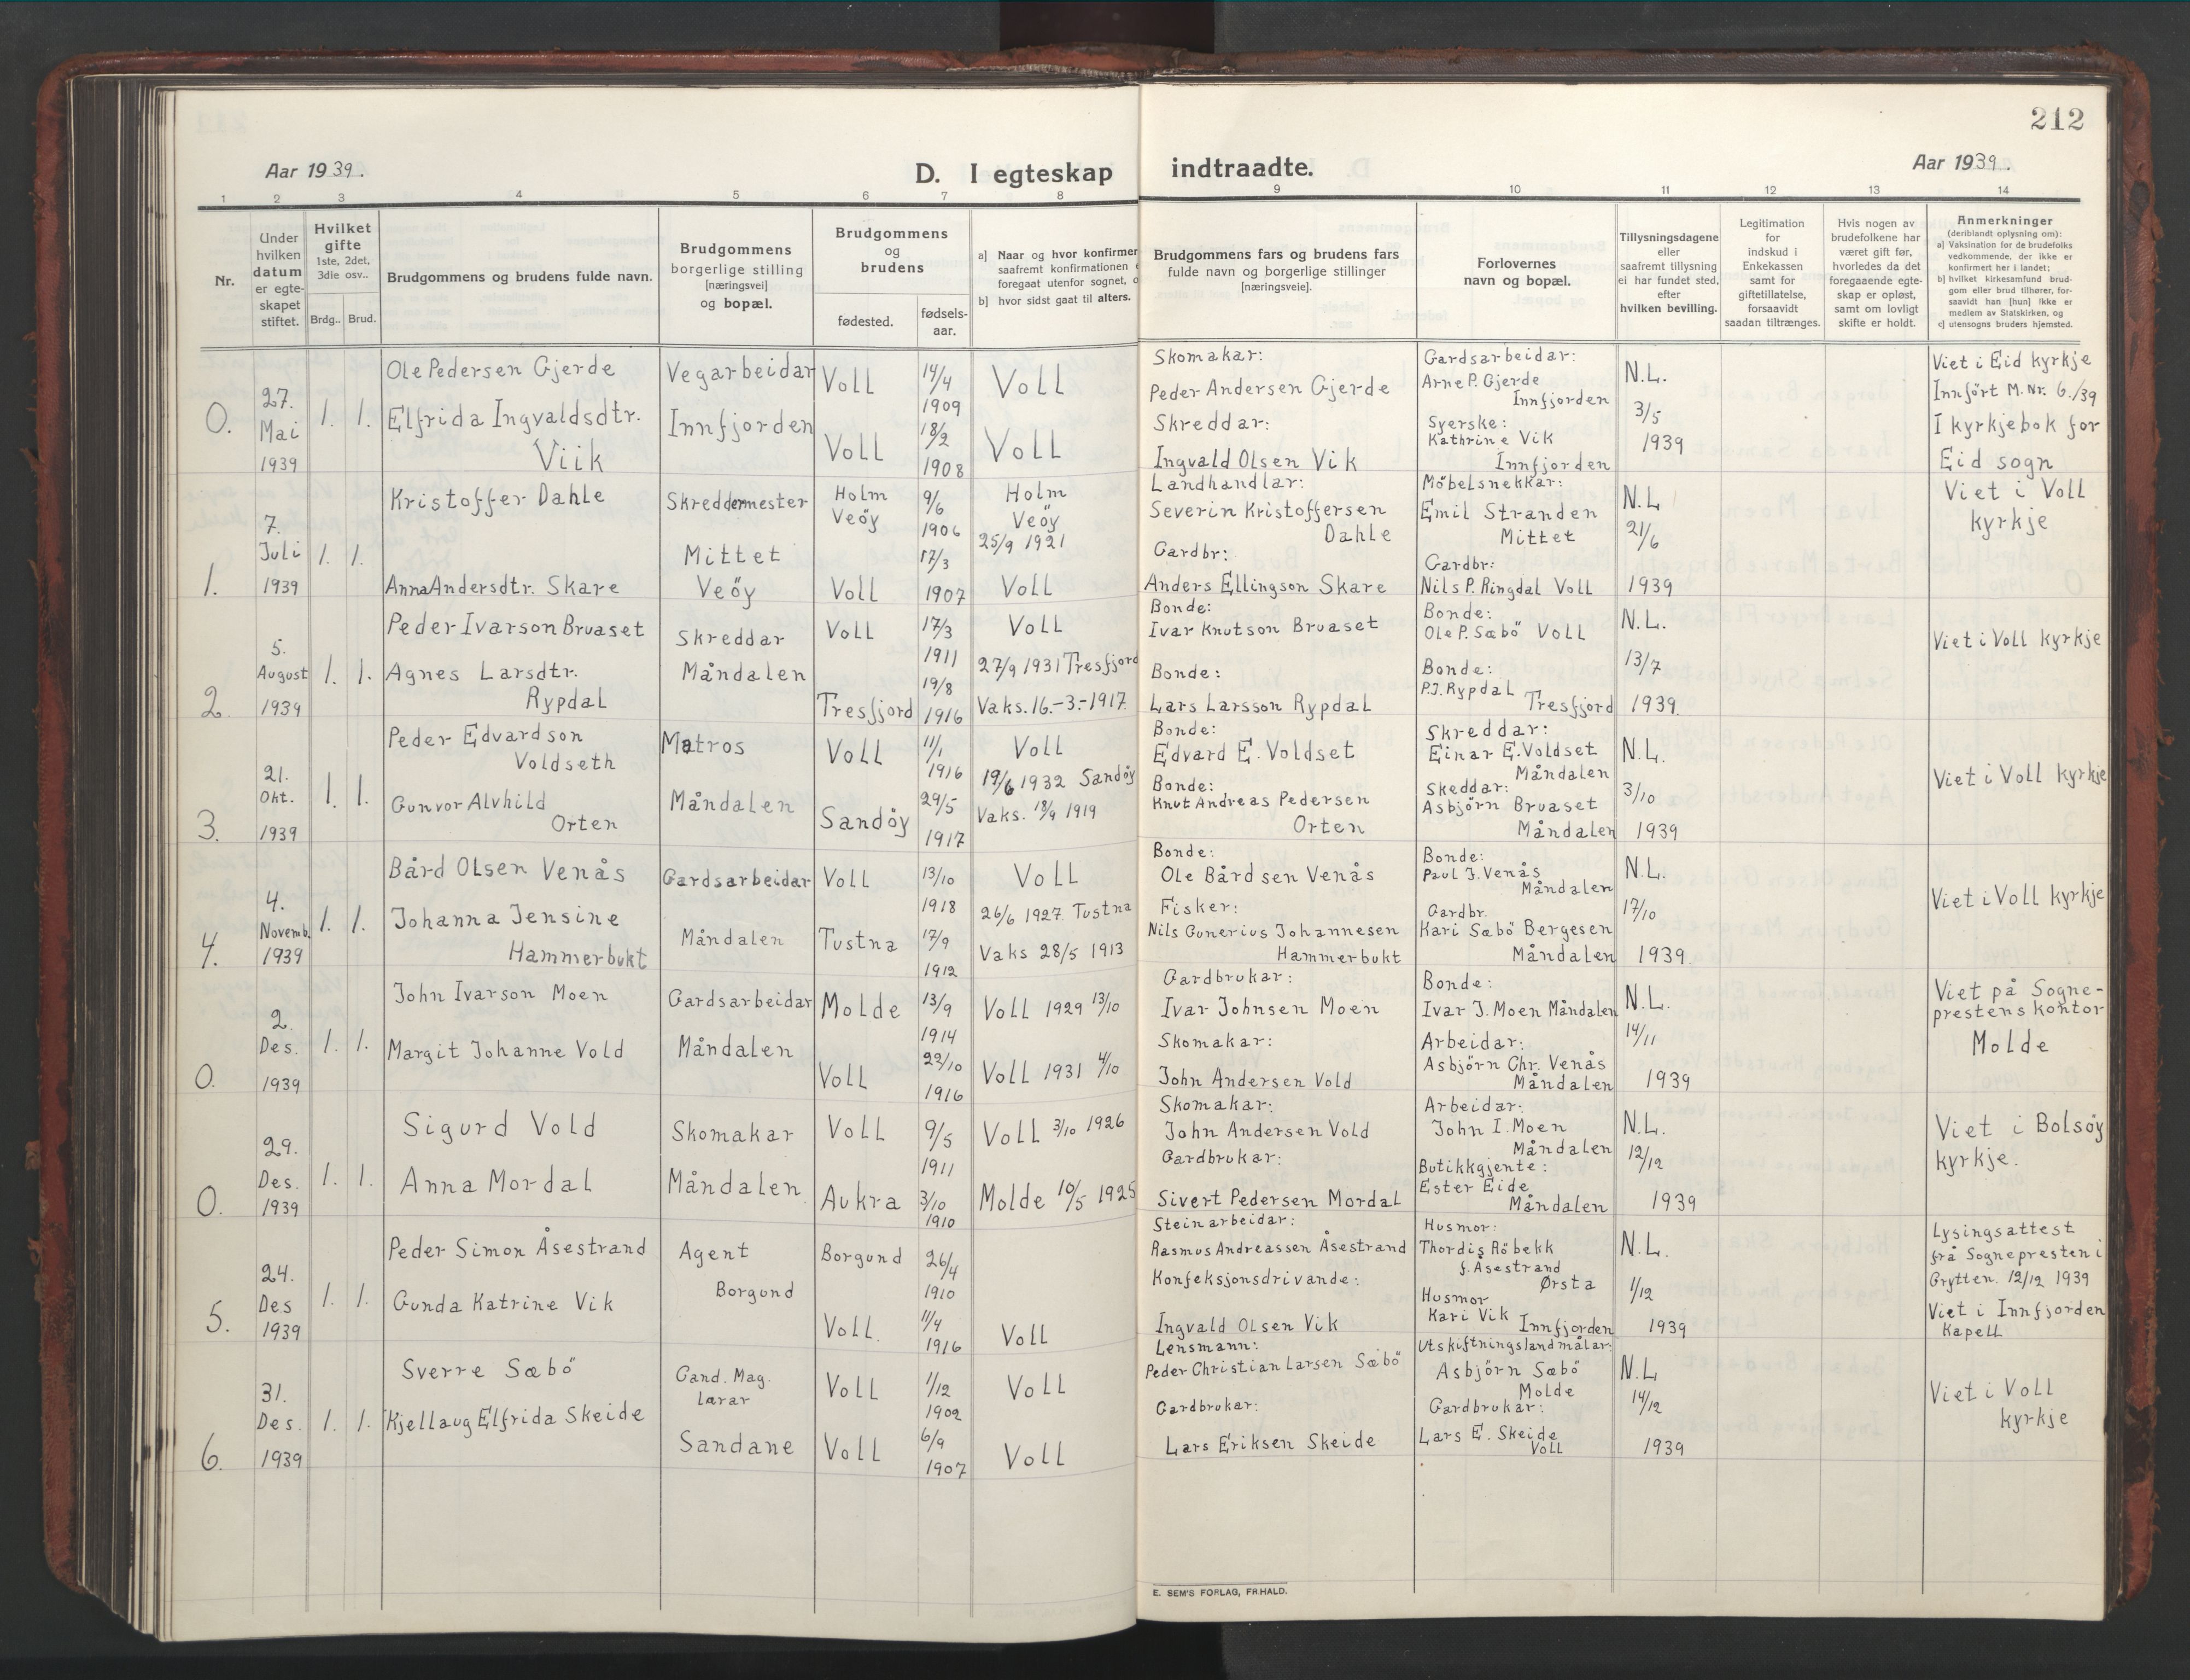 212
Aar 1939.
D. I egteskap indtraadte.
Aar 1939.
1 2 3 4 5 6 7 8 9 10 11 12 13 14
Nr.
Under hvilken datum er egte-skapet stiftet.
Hvilket gifte
1ste, 2det, 3die osv..
Brdg.. Brud.
Brudgommens og brudens fulde navn.
Brudgommens borgerlige stilling [næringsvei] og bopæl.
Brudgommens og brudens
fødested.
fødsels-aar.
a) Naar og hvor konfirmer
saafremt konfirmationen
foregaat utenfor sognet,
b) hvor sidst gaat til alters.
Brudgommens fars og brudens fars
fulde navn og borgerlige stillinger
[næringsveie].
Forlovernes
navn og bopæl.
Tillysningsdagene
eller
saafremt tillysning
ei har fundet sted,
efter
hvilken bevilling.
Legitimation
for
indskud i
Enkekassen
samt for
giftetillatelse,
forsaavidt
saadan tiltrænges.
Hvis nogen av
brudefolkene har
været gift før,
hvorledes da det
foregaaende egte-
skap er opløst,
samt om lovligt
skifte er holdt.
Anmerkninger
(deriblandt oplysning om):
a) Vaksination for de brudefolks
vedkommende, der ikke er
konfirmert her i landet;
b) hvilket kirkesamfund brud-
gom eller brud tilhører, for-
saavidt han [hun] ikke er
medlem av Statskirken, og
c) utensogns bruders hjemsted.
0.
27.
Mai
1939
1. 1.
Ole Pedersen Gjerde
Elfrida Ingvaldsdtr.
Viik
Vegarbeidar
Innfjorden
Voll
14/4
1909
Voll
18/2
1908
Voll
Voll
Skomakar:
Peder Andersen Gjerde
Skreddar:
Ingvald Olsen Vik
Gardsarbeidar:
Arne P. Gjerde
Innfjorden
Syerske:
Kathrine Vik
Innfjorden
N.L.
3/5
1939
Viet i Eid kyrkje
Innfört M. Nr. 6./39
I kyrkjebok for
Eid sogn
1.
7.
Juli
1939
1. 1.
Kristoffer Dahle
Anna Andersdtr. Skare
Skreddermester
Mittet
Veöy
Holm
Veöy
9/6
1906
Voll
17/3
1907
Holm
Veöy
25/9 1921
Voll
Landhandlar:
Severin Kristoffersen
Dahle
Gardbr:
Anders Ellingson Skare
Möbelsnekkar:
Emil Stranden
Mittet
Gardbr:
Nils P. Ringdal Voll
N.L
21/6
1939
Viet i Voll
kyrkje
2.
5.
August
1939
1. 1.
Peder Ivarson Bruaset
Agnes Larsdtr.
Rypdal
Skreddar
Måndalen
Voll
17/3
1911
Tresfjord
19/8
1916
Voll
27/9 1931 Tresfjord
Vaks. 16.-3.-1917.
Bonde:
Ivar Knutson Bruaset
Bonde:
Lars Larsson Rypdal
Bonde:
Ole P. Sæbö Voll
Bonde:
P.J. Rypdal
Tresfjord
N.L.
13/7
1939.
Viet i Voll kyrkje
3.
21.
Okt.
1939
1. 1.
Peder Edvardson
Voldseth
Gunvor Alvhild
Orten
Matros
Måndalen
Voll
11/1
1916
Sandöy
29/5
1917
Voll
19/6 1932 Sandöy
Vaks. 18/9 1919
Bonde:
Edvard E. Voldset
Bonde:
Knut Andreas Pedersen
Orten
Skreddar:
Einar E. Voldset
Måndalen
Skeddar:
Asbjörn Bruaset
Måndalen
N.L.
3/10
1939
Viet i Voll kyrkje
4.
4.
Novemb.
1939
1. 1.
Bård Olsen Venås
Johanna Jensine
Hammerbukt
Gardsarbeidar
Måndalen
Voll
13/10
1918
Tustna
17/9
1912
Voll
26/6 1927 Tustna
Vaks 28/5 1913
Bonde:
Ole Bårdsen Venås
Fisker:
Nils Gunerius Johannesen
Hammerbukt
Bonde:
Paul J. Venås
Måndalen
Gardbr.
Kari Sæbö Bergesen
Måndalen
N.L.
17/10
1939.
Viet i Voll kyrkje
0.
2.
Des.
1939
1. 1.
John Ivarson Moen
Margit Johanne Vold
Gardsarbeidar
Måndalen
Molde
13/9
1914
Voll
22/10
1916
Voll 1929 13/10
Voll 1931 4/10
Gardbrukar:
Ivar Johnsen Moen
Skomakar:
John Andersen Vold
Bonde:
Ivar J. Moen Måndalen
Arbeidar:
Asbjörn Chr. Venås
Måndalen
N.L.
14/11
1939
Viet på Sogne-
prestens kontor
Molde
0.
29.
Des.
1939
1. 1.
Sigurd Vold
Anna Mordal
Skomakar
Måndalen
Voll
9/5
1911
Aukra
3/10
1910
Voll 3/10 1926
Molde 10/5 1925
Skomakar:
John Andersen Vold
Gardbrukar:
Sivert Pedersen Mordal
Arbeidar:
John I. Moen
Måndalen
Butikkgjente:
Ester Eide
Måndalen
N.L.
12/12
1939
Viet i Bolsöy
kyrkje.
5.
24.
Des
1939
1. 1.
Peder Simon Åsestrand
Gunda Katrine Vik
Agent
Borgund
Borgund
26/4
1910
Voll.
11/4
1916
Voll
Steinarbeidar:
Rasmus Andreassen Åsestrand
Konfeksjonsdrivande:
Ingvald Olsen Vik
Husmor:
Thordis Röbekk
f. Åsestrand
Ørsta
Husmor
Kari Vik Innfjorden
N.L.
1/12
1939
Lysingsattest
frå Sognepresten i
Grytten. 12/12 1939
Viet i Innfjorden
Kapell
6.
31.
Des.
1939
1. 1.
Sverre Sæbö
Kjellaug Elfrida Skeide
Cand. Mag.
Lærar
Sandane
Voll
1/12
1902
Voll
6/9
1907
Voll
Voll
Lensmann:
Peder Christian Larsen Sæbö
Gardbrukar:
Lars Eriksen Skeide
Utskiftningslandmålar:
Asbjörn Sæbö
Molde
Gardbrukar:
Lars E. Skeide
Voll
N.L
14/12
1939
Viet i Voll
kyrkje
E. SEM'S FORLAG, FR.HALD.